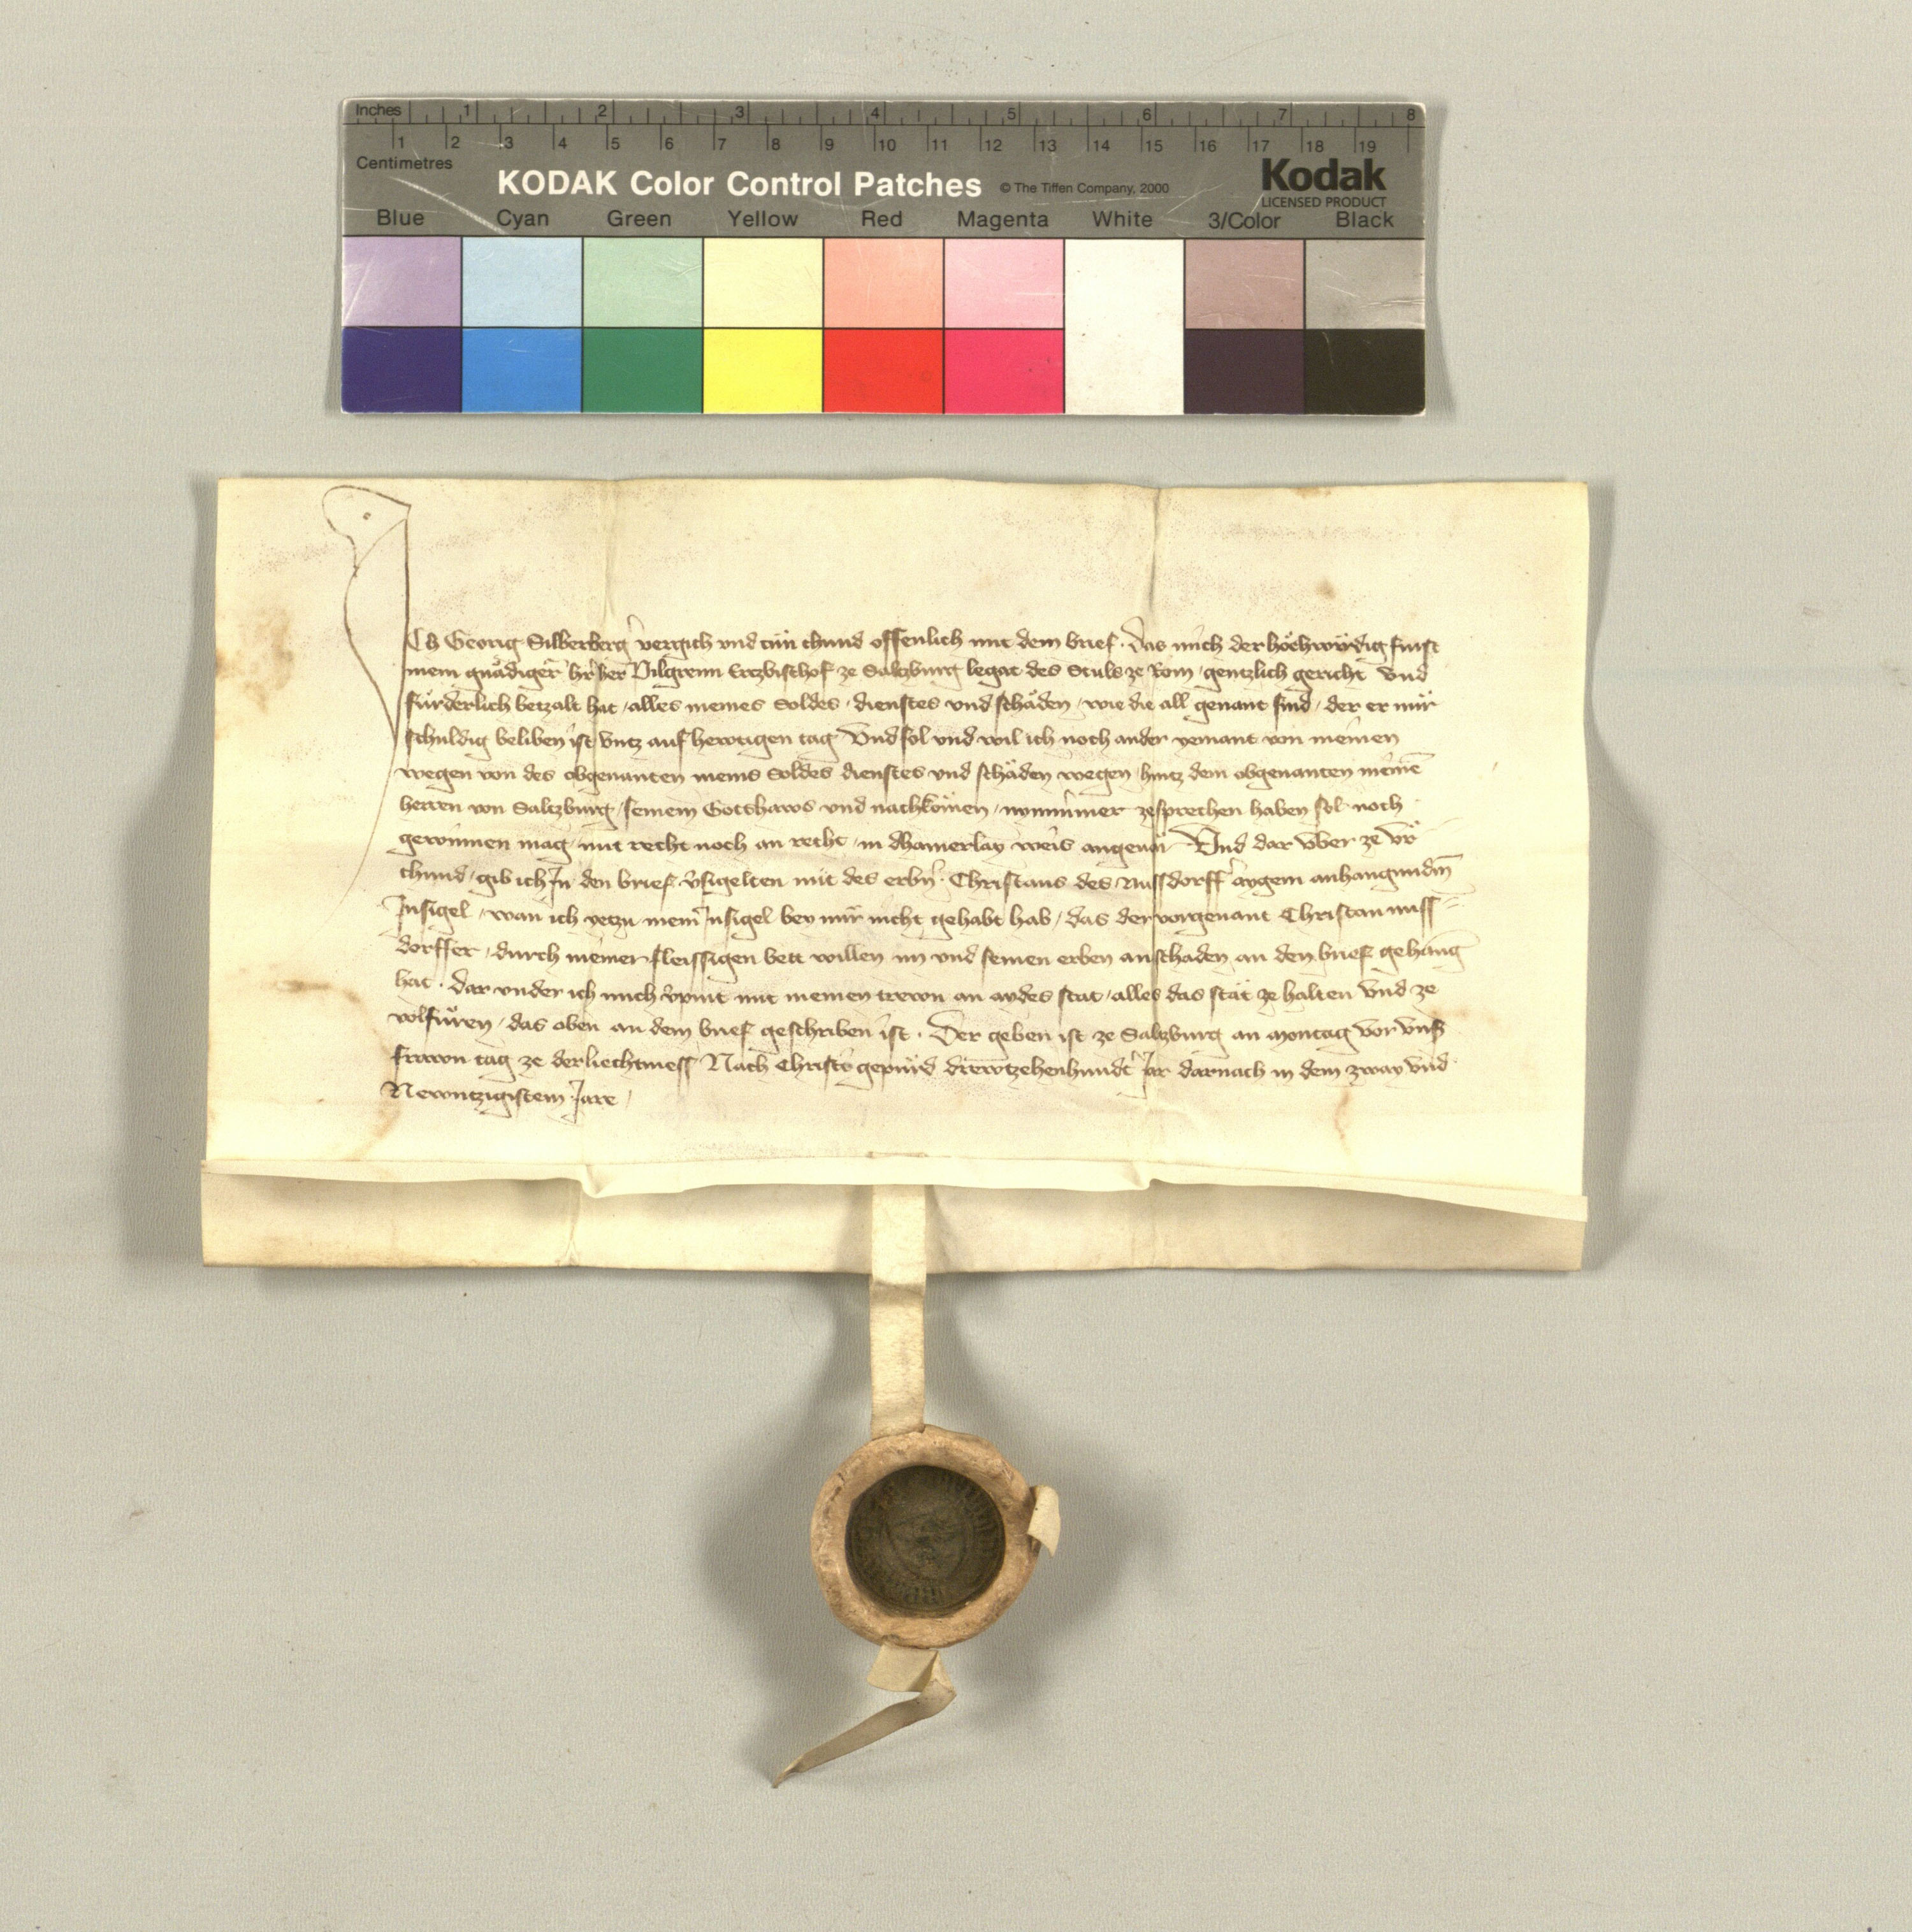 Inches 1 2 3 4 5 6 7 8
1 2 3 4 5 6 7 8 9 10 11 12 13 14 15 16 17 18 19
Centimetres
KODAK Color Control Patches © The Tiffen Company, 2000 Kodak
LICENSED PRODUCT
Blue Cyan Green Yellow Red Magenta White 3/Color Black
Ich Georig Silberberg̉ vergich vnd tün chund offenlich mit dem brief. Das mich der höchwirdig fürst
mein gnädiger̄ hr̄ her Pilgreim Ertzbischof ze Saltzburg legat des Stuls ze Rom / gentzlich gericht vnd
fürderlich betzalt hat / alles meines Soldes / dienstes vnd schäden / wie die all genant sind / der er mir
schuldig beliben ist vntz auf hewtigen tag Vnd sol vnd wil ich noch ander yemant von meinen
wegen von des obgenanten meins Soldes dienstes vnd schäden wegen / hintz dem obgenanten meinē
herren von Saltzburg / seinem Gotshaws vnd nachkömen / nymmmer zesprechen haben sol noch
gewinnen mag / mit recht noch an recht / in dhainerlay weis angeuär Vnd dar vber ze vr
chund / gib ich In den brief v̉sigelten mit des erbn̄ Christans des Nussdorff̉ aygem anhangundm̄
Insigel / wan ich yetzu mein Insigel bey mir nicht gehabt hab / das der vorgenant Christan nuss=
dorffer / durch meiner fleissigen bett willen im vnd seinen erben an schaden an den brief gehanḡ
hat. dar vnder ich mich v̉pint mit meinen trewn an aydes stat / alles das stät ze halten vnd ze
volfüren / das oben an dem brief geschriben ist. Der geben ist ze Saltzburg an Montag vor vnß
frawn tag ze der liechtmess Nach Christs gepurd drewtzehenhundt̉ Jar darnach in dem zway vnd
Newntzigistem Jare /